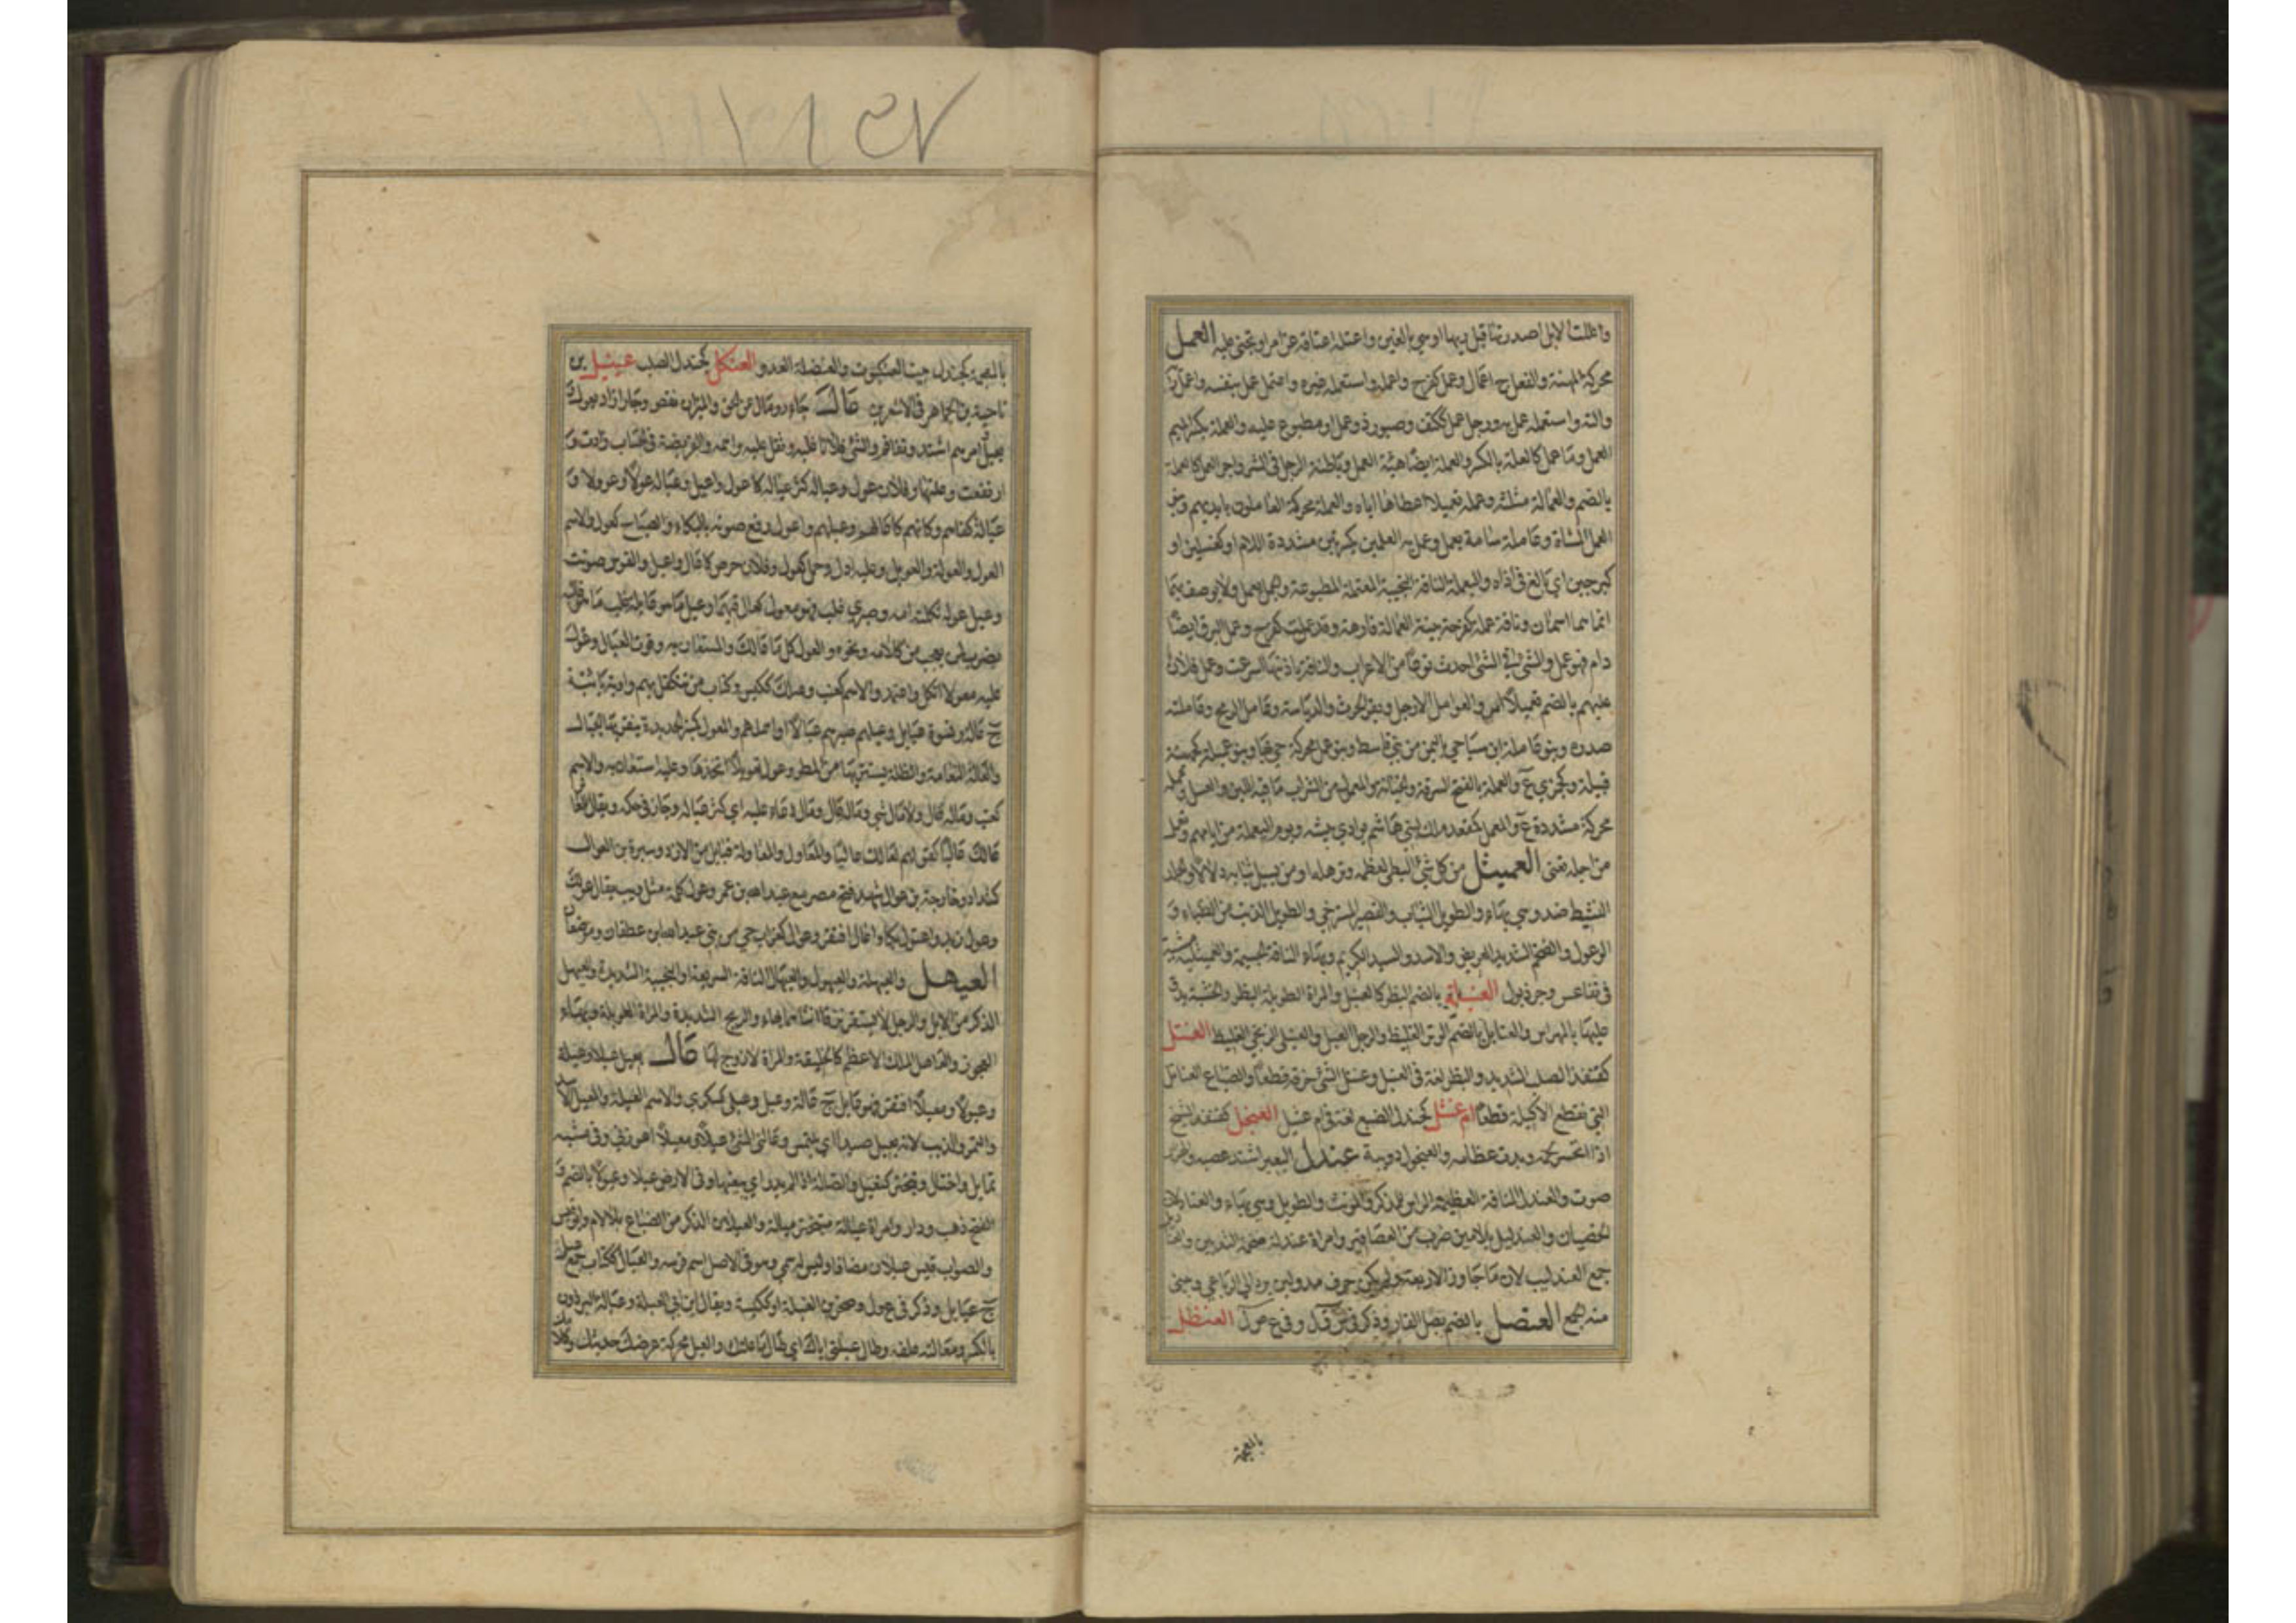 واعلت الابل اصدرتها قبل ريها او هي بالغين واعتله اعتاقه عن امر او تجنى عليه العمل
محركة المهنة والفعل ج اعمال وعمل كفرح واعمله واستعمله غيره واعتمل عمل بنفسه واعمل رأيه
وآلته واستعمله عمل به ورجل عمل ككتف وصبور ذو عمل او مطبوع عليه والعملة بكسر الميم
العمل وما عمل كالعملة بالكسر والعملة ايضا هيئة العمل وباطنة الرجل في الشر واجر العمل كالعملة
بالضم والعمالة مثلثة وعمله تعميلا اعطاها اياه والعملة محركة العاملون بايديهم وبنو
العمل المشاة وعامله سامه بعمل وعمل به العملين بكسرتين مشددة اللام او كغسلين او
كبرحين اي بالغ في اذاه واليعملة الناقة النجيبة المعتملة المطبوعة والجمل يعمل ولا يوصف بهما
انما هما اسمان وناقة عملة كفرحة بينة العمالة فارهة وقد عملت كفرح وعمل البرق ايضا
دام فهو عمل والشيء في الشيء احدث نوعا من الاعراب والناقة باذنها اسرعت وعمل فلان
عليهم بالضم تعميلا امر والعوامل الارجل وبقر الحرث والدياسة وعامل الرمح وعاملته
صدره وبنو عاملة ابن سبا حي باليمن من بني قاسط وبنو عمل محركة حي بها وبنو عميلة كجهينة
قبيلة وكجمزى ع والعملة بالفتح السرقة والخيانة والمعمول من الشراب ما فيه اللبن والعسل وعملة
محركة مشددة ع والمعمل كمقعد ملك لبني هاشم بوادي بيشه ويوم اليعملة من ايامهم وتعمل
من اجله تعنى العميثل من كل شيء البطيء لعظمه وترهله او من يسبل ثيابه دلالا والجلد
النشيط ضد وهي بهاء والطويل الثياب والقصير المسترخي والطويل الذنب من الظباء و
الوعول والضخم الشديد العريض والاسد والسيد الكريم وبهاء الناقة الجسيمة والعميثلية مشية
في تقاعس وجر ذيول العنبلة بالضم البظر كالعنبل والمرأة الطويلة البظر والخشبة يدق
عليها بالمهراس والعنابل بالضم الوتر الغليظ والرجل العبل والعنبلي الزنجي الغليظ العنتل
كقنفذ الصلب الشديد والبظر لغة في العنبل وعنتل الشيء خرقه قطعا والضباع العناتل
التي تقطع الاكيلة قطعا ام عنثل كجندل الضبع لغة في ام عثيل العنجل كقنفذ الشيخ
اذا انحسر لحمه وبدت عظامه والعنجول دويبة عندل البعير اشتد عصبه والهزار
صوت والعندل الناقة العظيمة الراس للمذكر والمؤنث والطويل وهي بهاء والعنادلان
الخصيان والعندليل بلامين ضرب من العصافير وامرأة عندلة ضخمة الثديين والعنادل
جمع العندليب لان ما جاوز الاربعة ولم يكن حرف مد ولين يرد الى الرباعي ويبنى
منه الجمع العنصل بالضم بصل الفار وذكر في ع ص ل العنظل
بالعجمة
بالمعجمة كجندل بيت العنكبوت والعنظلة العدو العنكل كجندل الصلب عينيل بن
ناحية بن الجماهر في الاشعريين عال جار ومال عن الحق والميزان نقص وجار او زاد يعول
ويعيل امرهم اشتد وتفاقم والشيء فلانا غلبه وثقل عليه واهمه والفريضة في الحساب زادت و
ارتفعت وعلتها وفلان عول وعيالة كثر عياله كاعول واعيل وعياله عولا وعوولا و
عيالة كفاهم ومانهم كاعالهم وعيلهم واعول رفع صوته بالبكاء والصياح كعول والاسم
العول والعولة والعويل وعليه ادل وحمل كعول وفلان حرص كاعال واعيل والقوس صوتت
وعيل عوله ثكلته امه وصبري غلب فهو معول كعال فيهما وعيل ما هو عائله غلب ما هو غالبه
يضرب لمن يعجب من كلامه ونحوه والعول كل ما عالك والمستعان به وقوت العيال وعول
عليه معولا اتكل واعتمد والاسم كعنب وعيالك ككيس وكتاب من تتكفل بهم واوية يائية
ج عالة ونسوة عيايل وعيلهم صيرهم عيالا او اهملهم والمعول كمنبر الحديدة ينقر بها الجبال
والعالة النعامة والظلة يستتر بها من المطر وعول تعويلا اتخذها وعليه استعان به والاسم
كعنب وماله عال ولا مال شيء وماله عال ومال دعاء عليه اي كثر عياله وجار في حكمه ويقال للعاثر
عالك عاليا كقولهم لعا لك عاليا والمعاول والمعاولة قبايل من الازد وسبرة بن العوال
كشداد وخارجة بن عوال شهد فتح مصر مع عبد الله بن عمر وعول كلمة مثل ويب يقال عولك
وعول زيد واعتول بكا واعال افتقر وعوال كغراب حي من بني عبد الله بن غطفان وموضعان
العيهل والعيهلة والعيهول والعيهال الناقة السريعة والنجيبة الشديدة والعيهل
الذكر من الابل والرجل لا يستقر نزقا انثاهما بهاء والريح الشديدة والمرأة الطويلة وبهاء
العجوز والعاهل الملك الاعظم كالخليفة والمرأة لا زوج لها عال يعيل عيلا وعيلة
وعيولا ومعيلا افتقر وهو عايل ج عالة وعيل وعيلى كسكرى والاسم العيلة والمعيل الاسد
والنمر والذيب لانه يعيل صيدا اي يلتمس وعالني الشيء عيلا ومعيلا اعوزني وفي مشيه
تمايل واختال وتبختر كتعيل والضالة اذا لم يدر اي يبغيها وفي الارض عيلا وعيولا بالضم و
الفتح ذهب ودار وامرأة عيالة متبخترة ميالة والعيلان الذكر من الضباع بلا لام وابو قيس
والصواب قيس عيلان مضافا وليس له سمي وهو في الاصل اسم فرسه والعيال ككتاب جمع عيل
ج عيايل وذكر في ع ول وصخر بن العيلة او ككيسة ويقال ابن ابي العيلة وعيالة البرذون
بالكسر ومعالته علفه وطال عيلتي اياك اي طال ما علتك والعيل محركة عرضك حديثك وكلامك